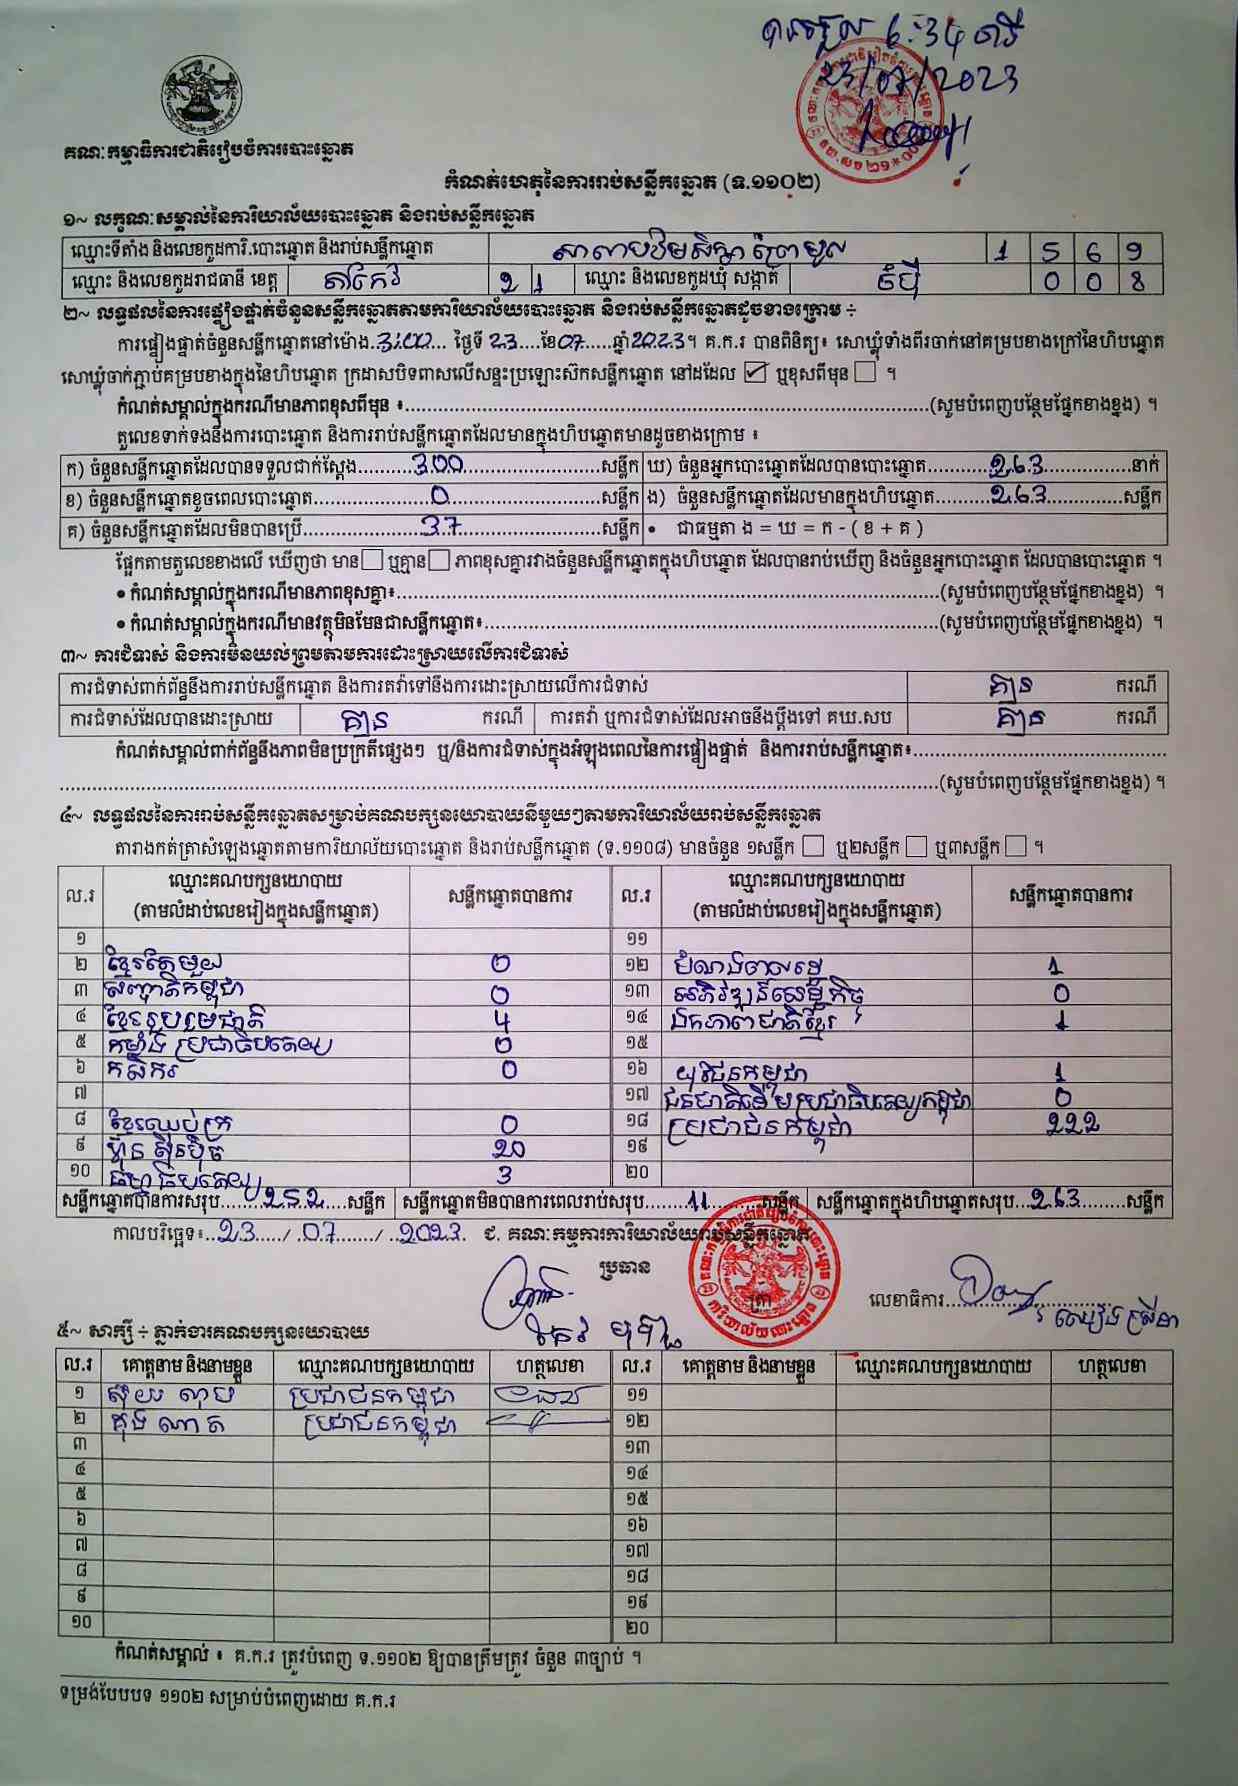 បានចូល 6:34 នាទី
23/07/2023
គណៈកម្មាធិការជាតិរៀបចំការបោះឆ្នោត
កំណត់ហេតុនៃការរាប់សន្លឹកឆ្នោត (ទ.១១០២)
១~ លក្ខណៈសម្គាល់នៃការិយាល័យបោះឆ្នោត និងរាប់សន្លឹកឆ្នោត
ឈ្មោះទីតាំង និងលេខកូដការិ.បោះឆ្នោត និងរាប់សន្លឹកឆ្នោត សាលាបឋមសិក្សា ព្រៃមូល 1 5 6 9
ឈ្មោះ និងលេខកូដរាជធានី ខេត្ត តាកែវ 2 1 ឈ្មោះ និងលេខកូដឃុំ សង្កាត់ 0 0 8
២~ លទ្ធផលនៃការផ្ទៀងផ្ទាត់ចំនួនសន្លឹកឆ្នោតតាមការិយាល័យបោះឆ្នោត និងរាប់សន្លឹកឆ្នោតដូចខាងក្រោម ÷
ការផ្ទៀងផ្ទាត់ចំនួនសន្លឹកឆ្នោតនៅម៉ោង..3:00.... ថ្ងៃទី 23....ខែ07.....ឆ្នាំ2023។ គ.ក.រ បានពិនិត្យ៖ សោឃ្លុំទាំងពីរចាក់នៅគម្របខាងក្រៅនៃហិបឆ្នោត
សោឃ្លុំចាក់ភ្ជាប់គម្របខាងក្នុងនៃហិបឆ្នោត ក្រដាសបិទពាសលើសន្ទះប្រឡោះស៊កសន្លឹកឆ្នោត នៅដដែល ☑ ឬខុសពីមុន ☐ ។
កំណត់សម្គាល់ក្នុងករណីមានភាពខុសពីមុន ៖......(សូមបំពេញបន្ថែមផ្នែកខាងខ្នង) ។
តួលេខទាក់ទងនឹងការបោះឆ្នោត និងការរាប់សន្លឹកឆ្នោតដែលមានក្នុងហិបឆ្នោតមានដូចខាងក្រោម ៖
ក) ចំនួនសន្លឹកឆ្នោតដែលបានទទួលជាក់ស្តែង..........300..........សន្លឹក ឃ) ចំនួនអ្នកបោះឆ្នោតដែលបានបោះឆ្នោត..........263..........នាក់
ខ) ចំនួនសន្លឹកឆ្នោតខូចពេលបោះឆ្នោត..........0..........សន្លឹក ង) ចំនួនសន្លឹកឆ្នោតដែលមានក្នុងហិបឆ្នោត..........263..........សន្លឹក
គ) ចំនួនសន្លឹកឆ្នោតដែលមិនបានប្រើ..........37..........សន្លឹក • ជាធម្មតា ង = ឃ = ក - ( ខ + គ )
ផ្អែកតាមតួលេខខាងលើ ឃើញថា មាន ☐ ឬគ្មាន ☐ ភាពខុសគ្នារវាងចំនួនសន្លឹកឆ្នោតក្នុងហិបឆ្នោត ដែលបានរាប់ឃើញ និងចំនួនអ្នកបោះឆ្នោត ដែលបានបោះឆ្នោត ។
• កំណត់សម្គាល់ក្នុងករណីមានភាពខុសគ្នា៖......(សូមបំពេញបន្ថែមផ្នែកខាងខ្នង) ។
• កំណត់សម្គាល់ក្នុងករណីមានវត្ថុមិនមែនជាសន្លឹកឆ្នោត៖......(សូមបំពេញបន្ថែមផ្នែកខាងខ្នង) ។
៣~ ការជំទាស់ និងការមិនយល់ព្រមតាមការដោះស្រាយលើការជំទាស់
ការជំទាស់ពាក់ព័ន្ធនឹងការរាប់សន្លឹកឆ្នោត និងការតវ៉ាទៅនឹងការដោះស្រាយលើការជំទាស់ គ្មាន ករណី
ការជំទាស់ដែលបានដោះស្រាយ គ្មាន ករណី ការតវ៉ា ឬការជំទាស់ដែលអាចនឹងប្តឹងទៅ គឃ.សប គ្មាន ករណី
កំណត់សម្គាល់ពាក់ព័ន្ធនឹងភាពមិនប្រក្រតីផ្សេងៗ ឬ/និងការជំទាស់ក្នុងអំឡុងពេលនៃការផ្ទៀងផ្ទាត់ និងការរាប់សន្លឹកឆ្នោត៖......
......(សូមបំពេញបន្ថែមផ្នែកខាងខ្នង) ។
៤~ លទ្ធផលនៃការរាប់សន្លឹកឆ្នោតសម្រាប់គណបក្សនយោបាយនីមួយៗតាមការិយាល័យរាប់សន្លឹកឆ្នោត
តារាងកត់ត្រាសំឡេងឆ្នោតតាមការិយាល័យបោះឆ្នោត និងរាប់សន្លឹកឆ្នោត (ទ.១១០៨) មានចំនួន ១សន្លឹក ☐ ឬ២សន្លឹក ☐ ឬ៣សន្លឹក ☐ ។
ល.រ ឈ្មោះគណបក្សនយោបាយ (តាមលំដាប់លេខរៀងក្នុងសន្លឹកឆ្នោត) សន្លឹកឆ្នោតបានការ ល.រ ឈ្មោះគណបក្សនយោបាយ (តាមលំដាប់លេខរៀងក្នុងសន្លឹកឆ្នោត) សន្លឹកឆ្នោតបានការ
១ ១១
២ ខ្មែរតែមួយ 0 ១២ សំណង់ពលរដ្ឋ 1
៣ សញ្ជាតិកម្ពុជា 0 ១៣ អភិវឌ្ឍន៍សេដ្ឋកិច្ច 0
៤ ខ្មែររួបរួមជាតិ 4 ១៤ ឯកភាពជាតិខ្មែរ 1
៥ កម្លាំង ប្រជាធិបតេយ្យ 0 ១៥
៦ កសិករ 0 ១៦ យុវជនកម្ពុជា 1
៧ ១៧ ជនជាតិដើមប្រជាធិបតេយ្យកម្ពុជា 0
៨ ខ្មែរឈប់ក្រ 0 ១៨ ប្រជាជនកម្ពុជា 222
៩ ហ៊្វុនស៊ិនប៉ិច 20 ១៩
១០ ធម្មាធិបតេយ្យ 3 ២០
សន្លឹកឆ្នោតបានការសរុប.......252.....សន្លឹក សន្លឹកឆ្នោតមិនបានការពេលរាប់សរុប.......11.......សន្លឹក សន្លឹកឆ្នោតក្នុងហិបឆ្នោតសរុប...263........សន្លឹក
កាលបរិច្ឆេទ៖..23...../ .07......./ ..2023. ជ. គណៈកម្មការការិយាល័យរាប់សន្លឹកឆ្នោត
ប្រធាន
ត្រា
លេខាធិការ......
៥~ សាក្សី ÷ ភ្នាក់ងារគណបក្សនយោបាយ
ល.រ គោត្តនាម និងនាមខ្លួន ឈ្មោះគណបក្សនយោបាយ ហត្ថលេខា ល.រ គោត្តនាម និងនាមខ្លួន ឈ្មោះគណបក្សនយោបាយ ហត្ថលេខា
១ ប្រជាជនកម្ពុជា ១១
២ ប្រជាជនកម្ពុជា ១២
៣ ១៣
៤ ១៤
៥ ១៥
៦ ១៦
៧ ១៧
៨ ១៨
៩ ១៩
១០ ២០
កំណត់សម្គាល់ ៖ គ.ក.រ ត្រូវបំពេញ ទ.១១០២ ឱ្យបានត្រឹមត្រូវ ចំនួន ៣ច្បាប់ ។
ទម្រង់បែបបទ ១១០២ សម្រាប់បំពេញដោយ គ.ក.រ